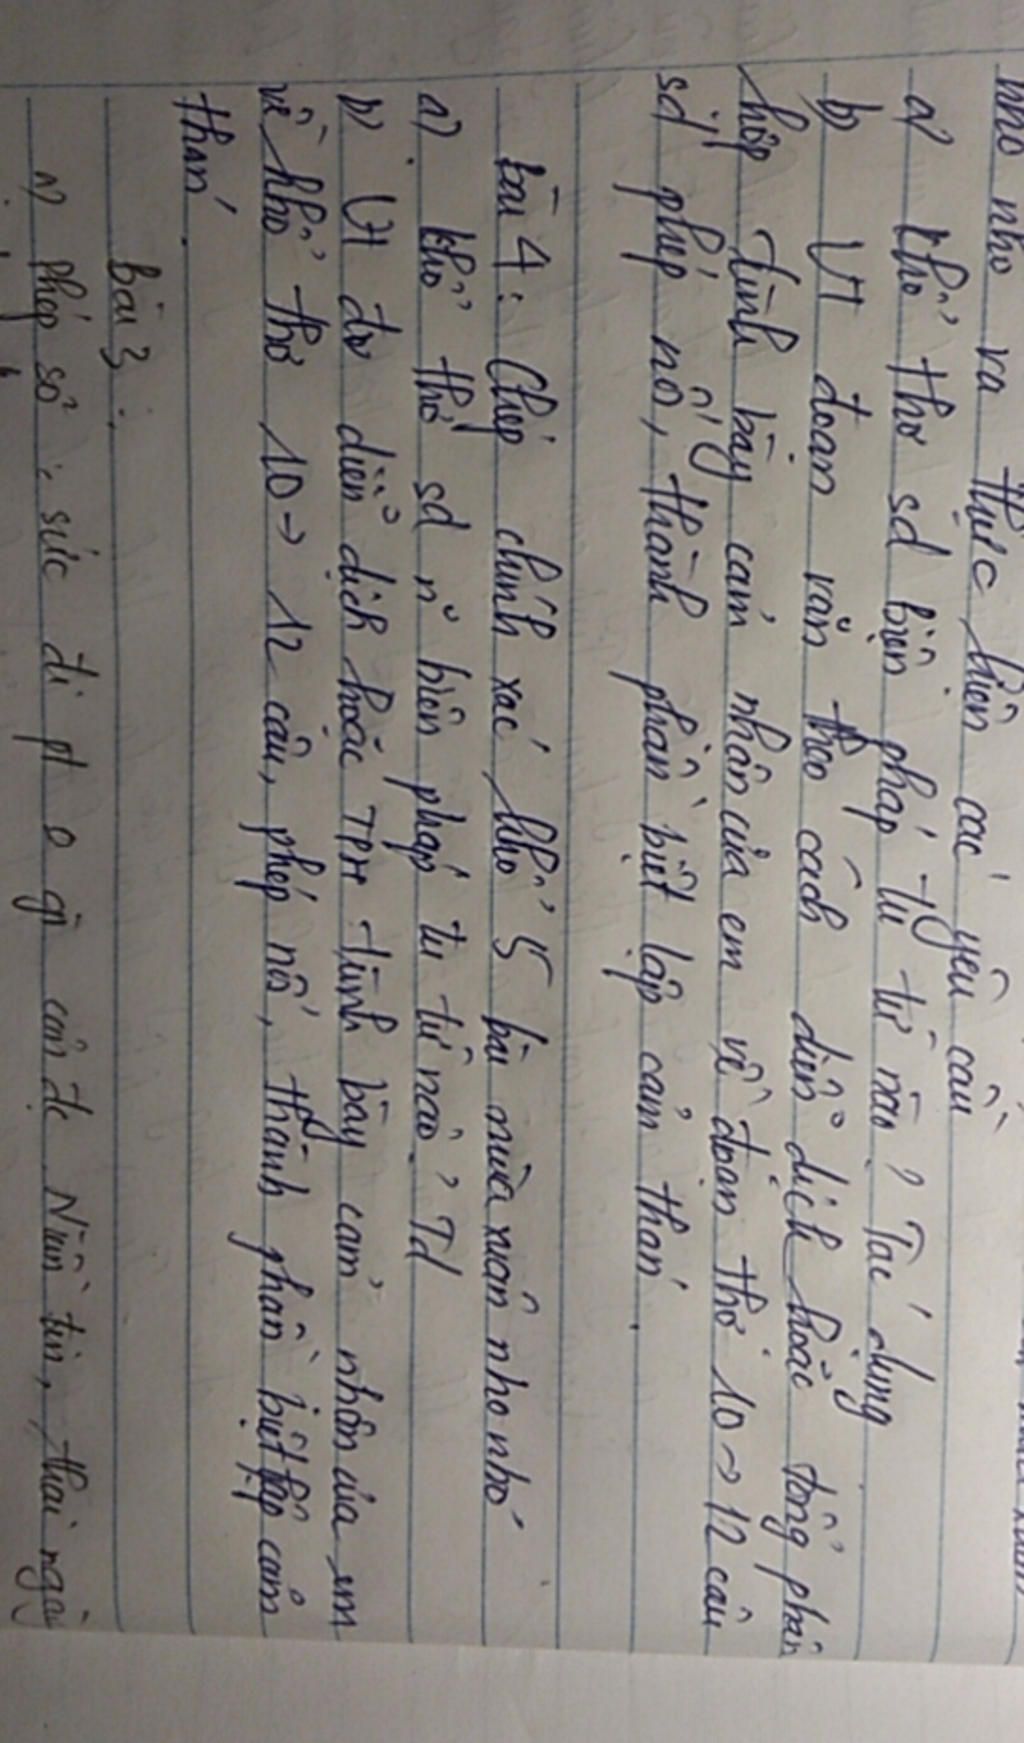 nhỏ nhỏ và thực hiện các yêu cầu
a) Khổ thơ sd biện pháp tu từ nào ? Tác dụng
b) VI đoạn văn theo cách diễn dịch hoặc tổng phân
hợp trình bày cảm nhận của em về đoạn thơ 10 -> 12 câu
sd phép nối, thành phần biệt lập cảm thán.
bài 4 : Chép chính xác khổ 5 bài mùa xuân nho nhỏ
a) khổ thơ sd n~ biện pháp tu từ nào ? Td
b) VI đv diễn dịch hoặc TPH trình bày cảm nhận của em
về khổ thơ 10 -> 12 câu, phép nối, thành phần biệt lập cảm
thán.
bài 3 :
a) phép so² : sức đi pt o gì cản đc Niềm tin,